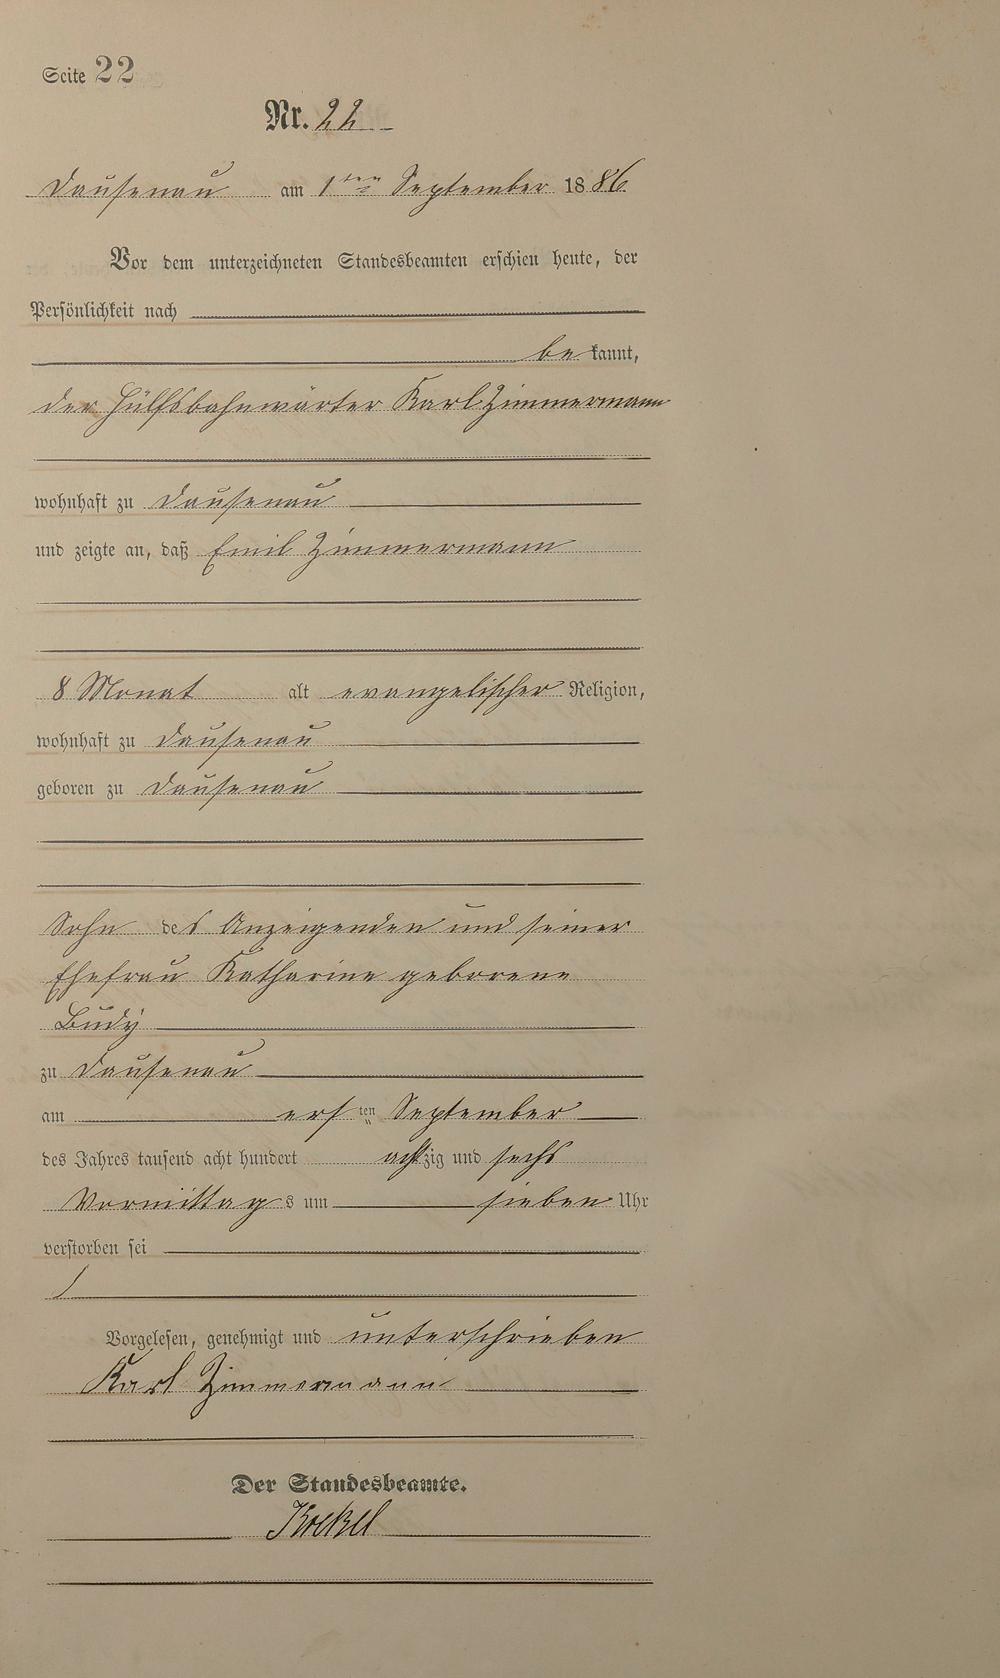 Seite 22
Nr. 22
Dausenau am 1ten September 1886
Vor dem unterzeichneten Standesbeamten erschien heute, der
Persönlichkeit nach
bekannt,
der Hülfsbahnwärter Karl Zimmermann
wohnhaft zu Dausenau
und zeigte an, daß Emil Zimmermann
8 Monat alt evangelischer Religion,
wohnhaft zu Dausenau
geboren zu Dausenau
Sohn des Anzeigenden und seiner
Ehefrau Katharine geborene
Budÿ
zu Dausenau
am ersten September
des Jahres tausend acht hundert achtzig und sechs
Vormittags um sieben Uhr
verstorben sei
Vorgelesen, genehmigt und unterschrieben
Karl Zimmermann
Der Standesbeamte.